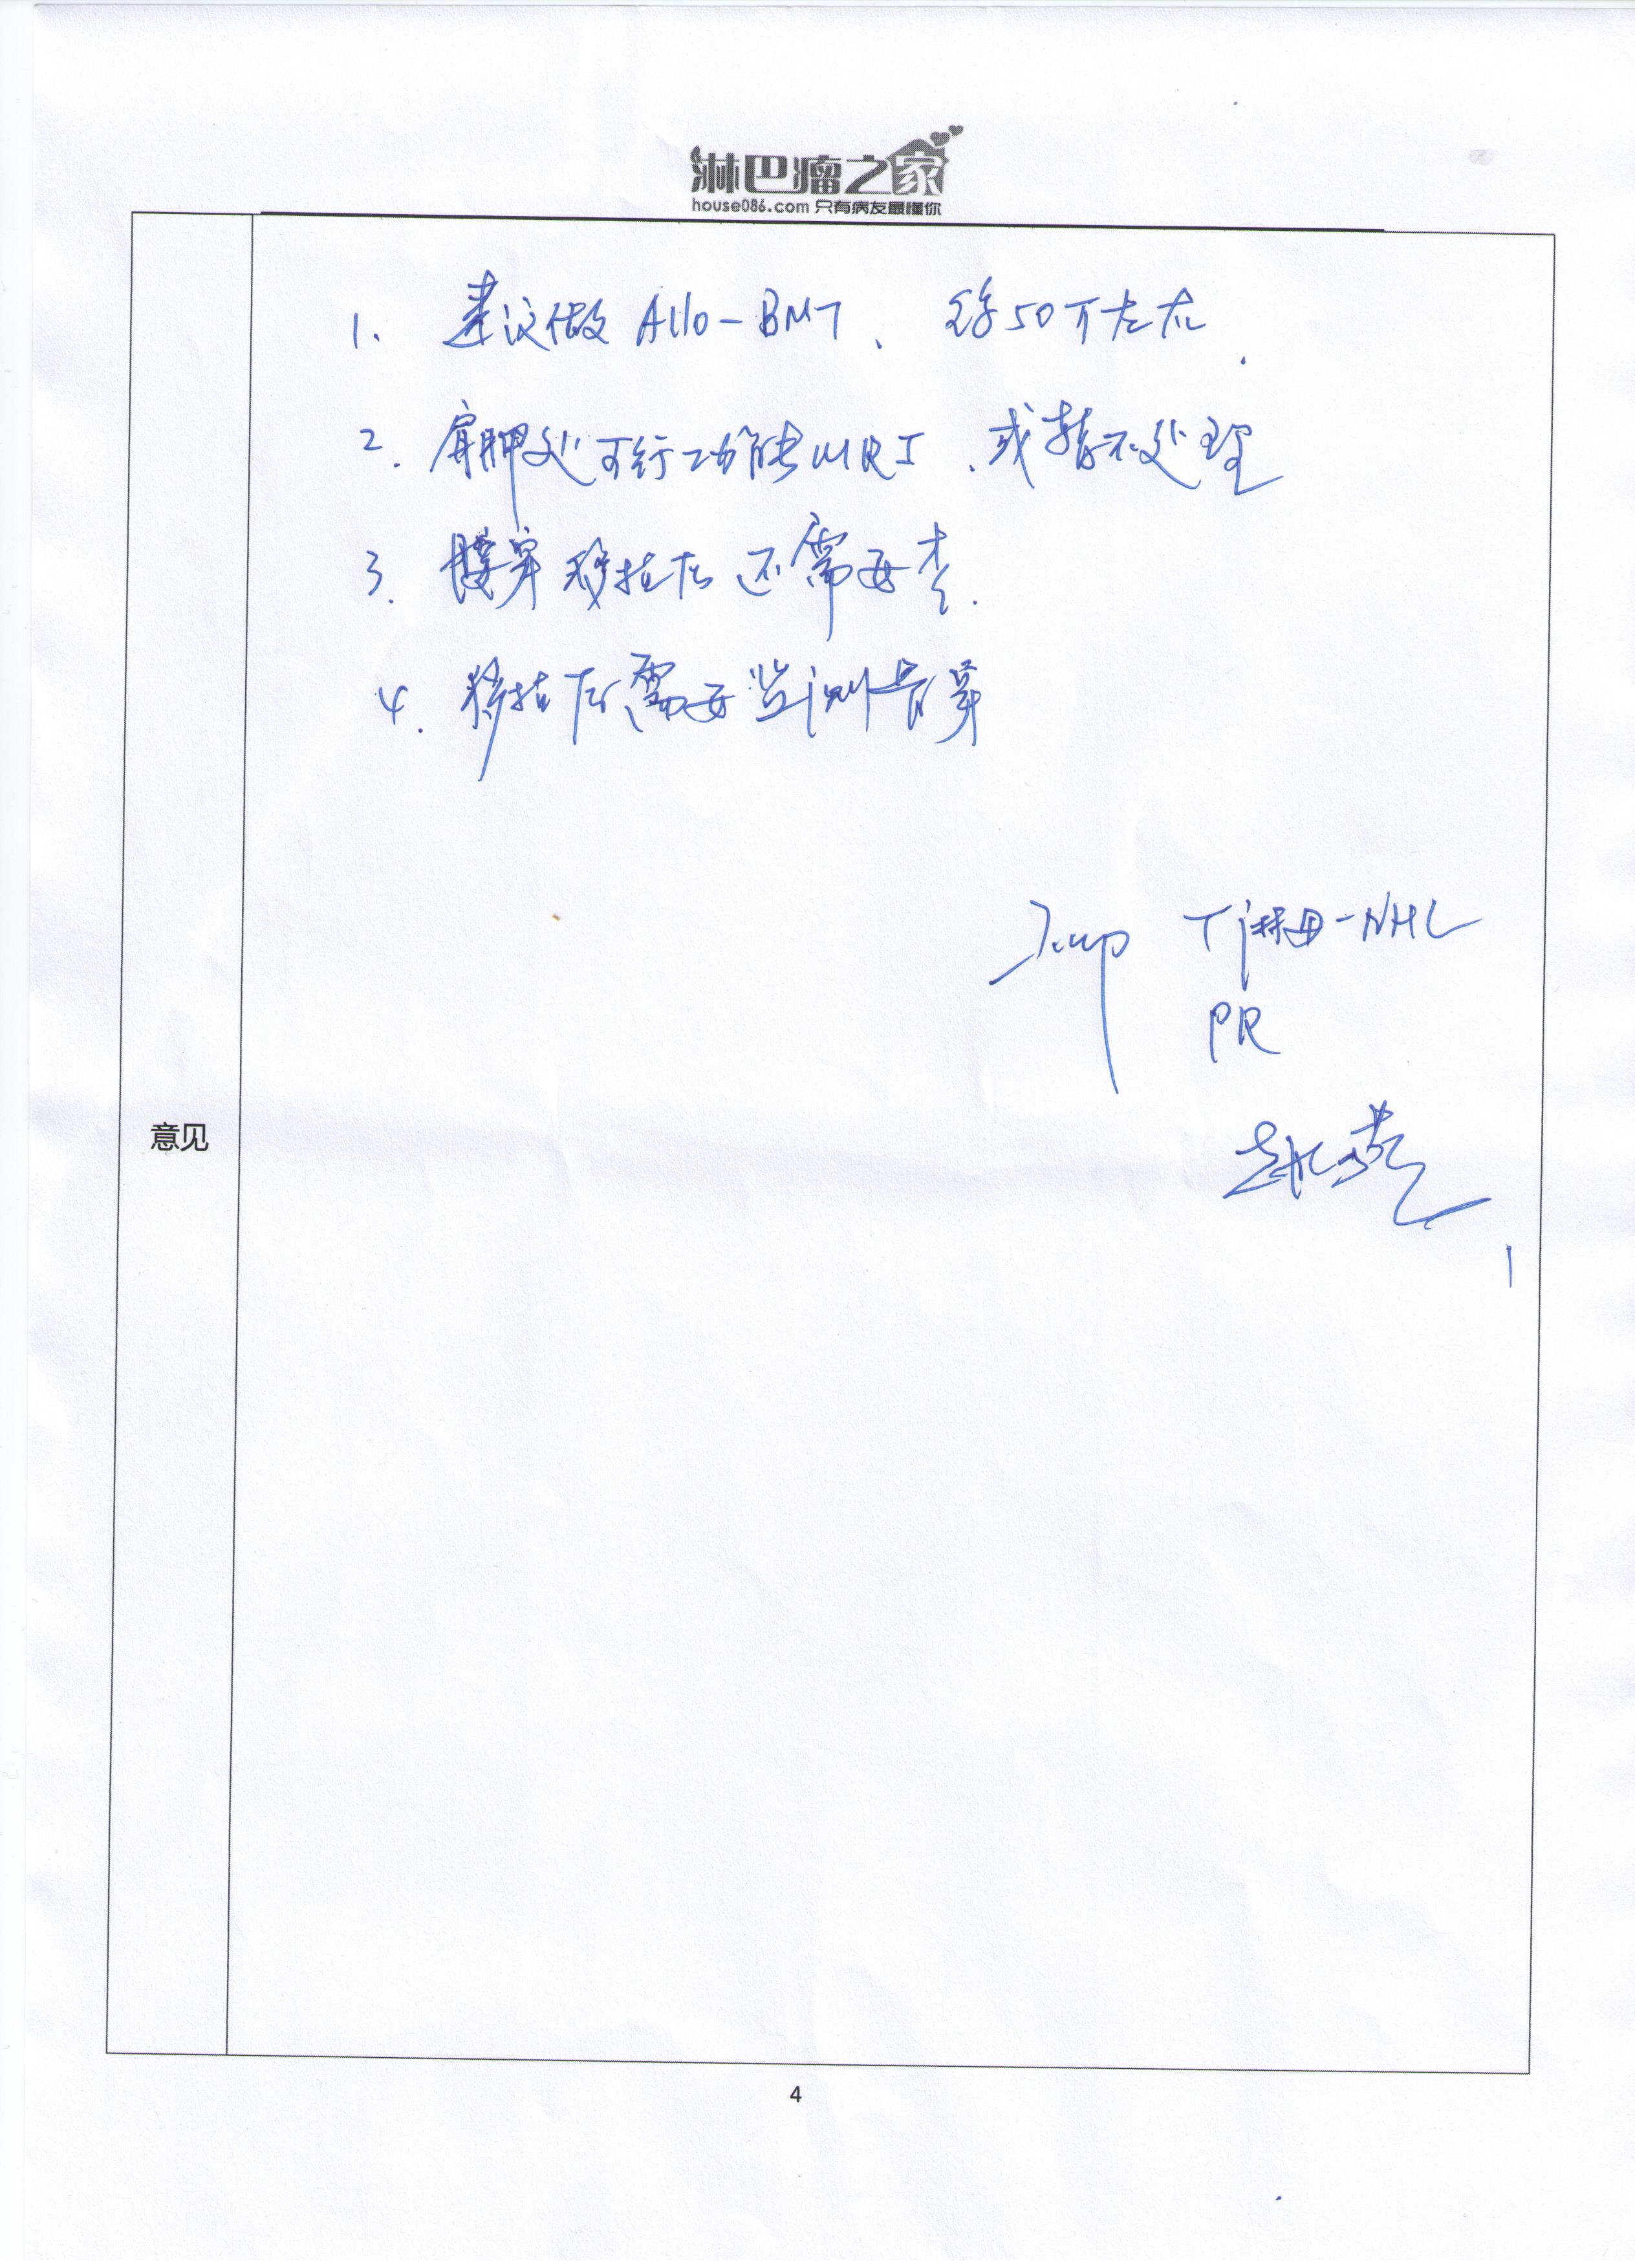 淋巴瘤之家
house086.com 只有病友最懂你
1. 建议做 Allo-BMT、 50万左右.
2. 肩胛处可行功能MRI、或暂不处理
3. 腰穿移植后还需要查.
4. 移植后需要监测骨穿
Imp T淋母-NHL
PR
意见
4